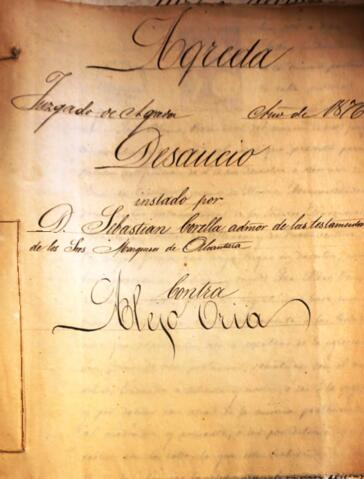 Agreda
Juzgado de Agreda Año de 1876
Desaucio
instado por
D. Sebastian Corella admor de las testamentarias
de los Sres Marqueses de
Contra
Alejo Oria